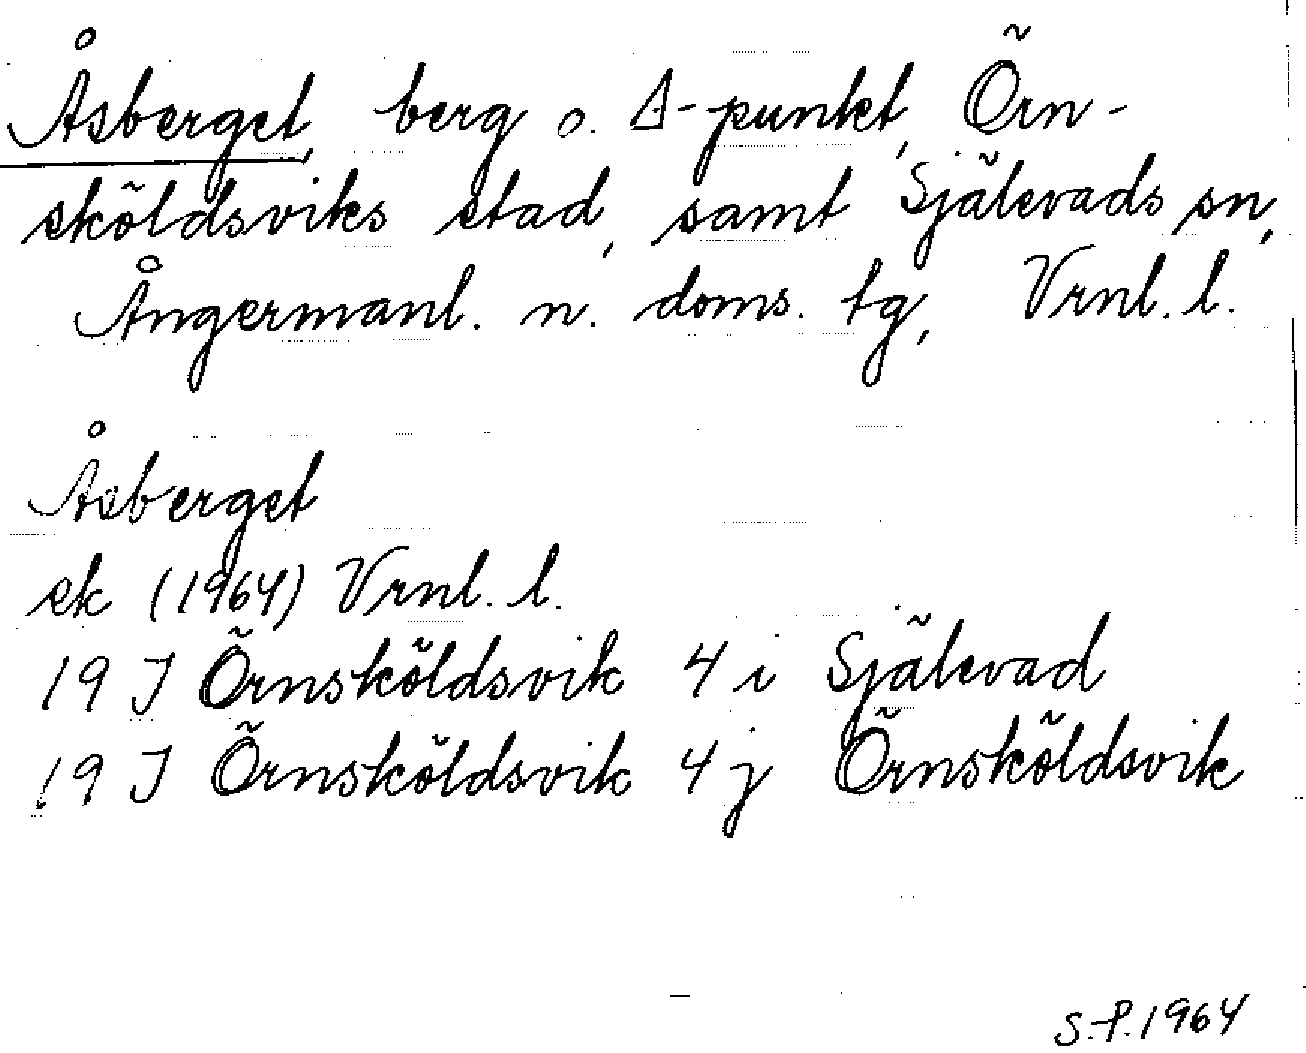 Åsberget, berg o. Δ-punkt, Örn-
sköldsviks stad, samt Själevads sn,
Ångermanl. n. doms. tg, Vrnl. l.
Åsberget
ek (1964) Vrnl. l.
19 J Örnsköldsvik 4 i Själevad
19 J Örnsköldsvik 4 j Örnsköldsvik
S.-P. 1964